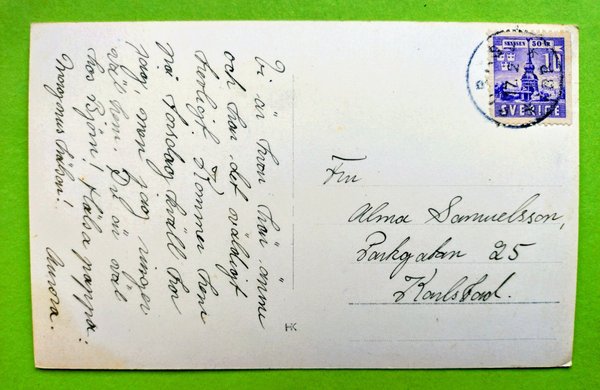 Vi är kvar här ännu
och har det väldigt
härligt. Kommer hem
på torsdag kväll tror
jag men jag ringer
väl hem. Du är väl
hos Björn! Hälsa pappa.
hälsn!
Aurora.
SKANSEN 50 ÅR
10
SVERIGE
Fru
Alma Samuelsson,
Parkgatan 25
Karlstad.
HK